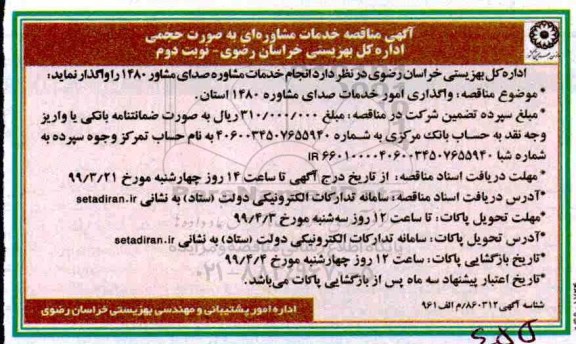 آگهی مناقصه خدمات مشاوره‌ای به صورت حجمی
اداره کل بهزیستی خراسان رضوی - نوبت دوم
اداره کل بهزیستی خراسان رضوی در نظر دارد انجام خدمات مشاوره صدای مشاور ۱۴۸۰ را واگذار نماید:
* موضوع مناقصه: واگذاری امور خدمات صدای مشاوره ۱۴۸۰ استان.
* مبلغ سپرده تضمین شرکت در مناقصه: مبلغ ۳۱۰/۰۰۰/۰۰۰ ریال به صورت ضمانتنامه بانکی یا واریز
وجه نقد به حساب بانک مرکزی به شماره ۴۰۶۰۰۳۴۵۰۷۶۵۵۹۴۰ به نام حساب تمرکز وجوه سپرده به
شماره شبا IR ۶۶۰۱۰۰۰۰۴۰۶۰۰۳۴۵۰۷۶۵۵۹۴۰
* مهلت دریافت اسناد مناقصه: از تاریخ درج آگهی تا ساعت ۱۴ روز چهارشنبه مورخ ۹۹/۳/۲۱
*آدرس دریافت اسناد مناقصه: سامانه تدارکات الکترونیکی دولت (ستاد) به نشانی setadiran.ir
*مهلت تحویل پاکات: تا ساعت ۱۲ روز سه‌شنبه مورخ ۹۹/۴/۳
*آدرس تحویل پاکات: سامانه تدارکات الکترونیکی دولت (ستاد) به نشانی setadiran.ir
*تاریخ بازگشایی پاکات: ساعت ۱۲ روز چهارشنبه مورخ ۹۹/۴/۴
*تاریخ اعتبار پیشنهاد سه ماه پس از بازگشایی پاکات می‌باشد.
شناسه آگهی ۸۶۰۳۱۲/م الف ۹۶۱
اداره امور پشتیبانی و مهندسی بهزیستی خراسان رضوی